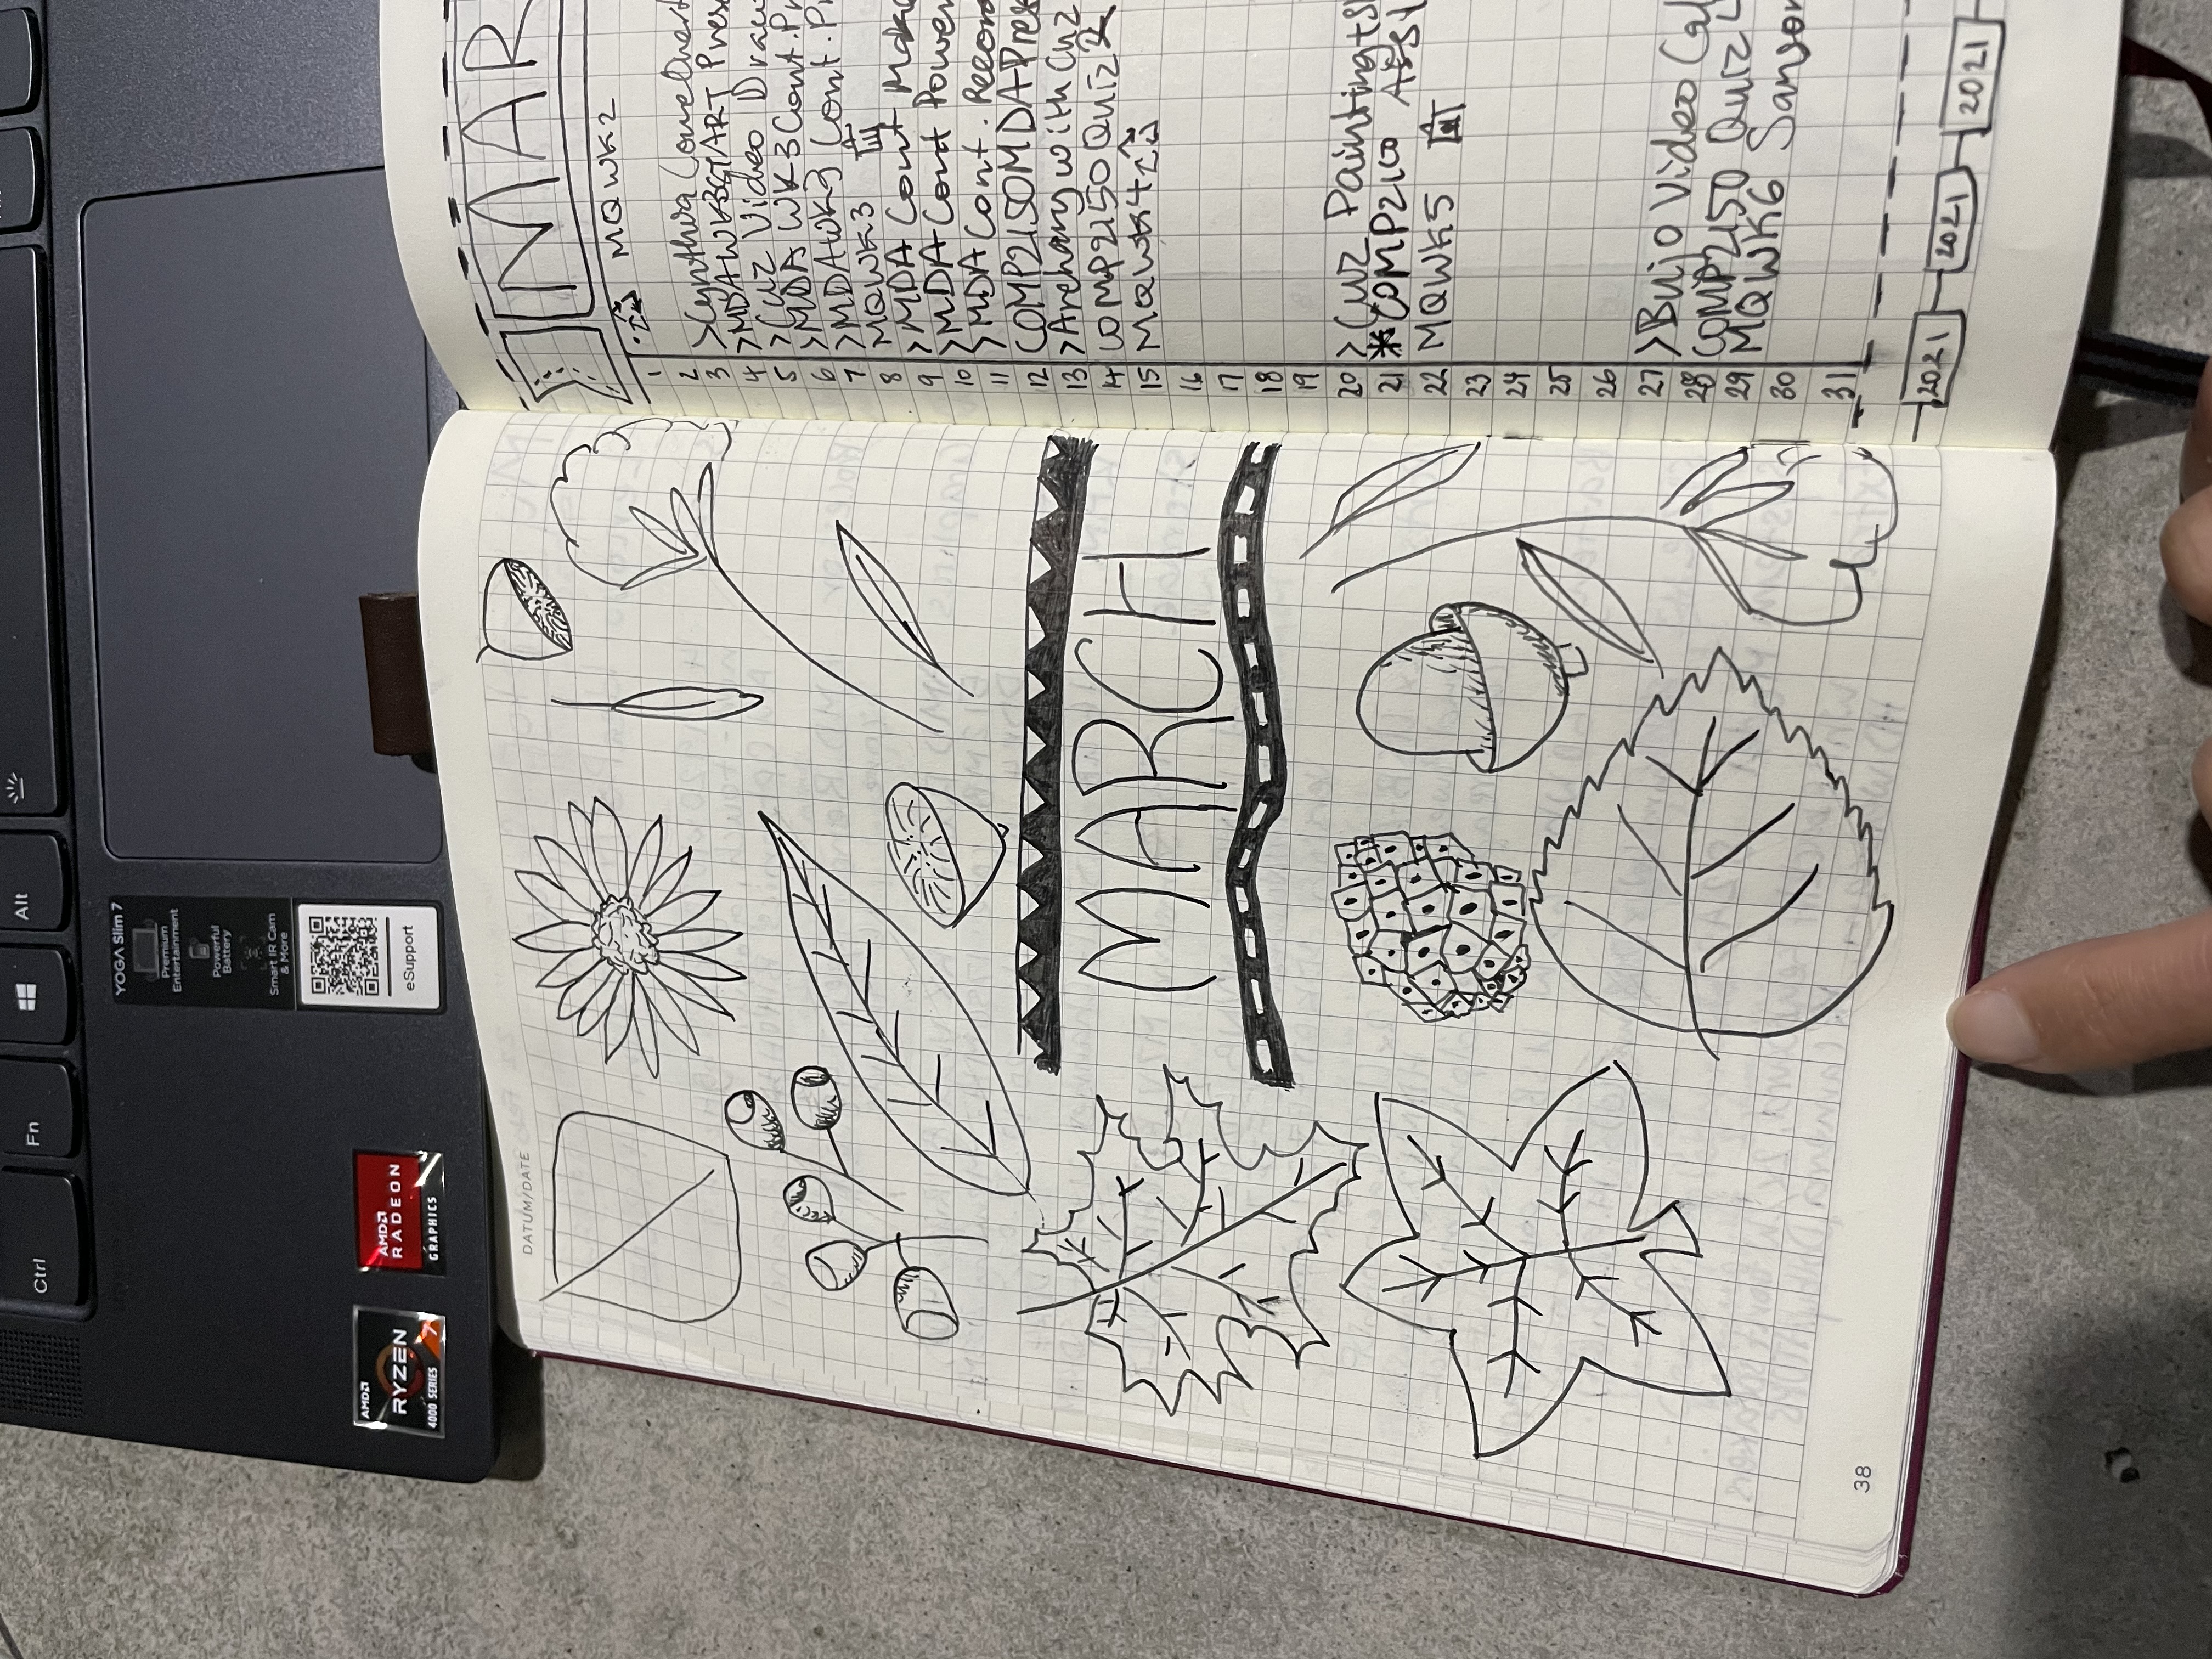 Ctrl
Fn
Alt
YOGA Slim 7
Premium
Entertainment
Powerful
Battery
Smart IR Cam
& More
eSupport
AMD
RYZEN
4000 SERIES 7
AMD
RADEON
GRAPHICS
DATUM/DATE
MARCH
38
MAR
MQWK2
1
2 >Cynthia
3 >MDAWK3START Prese
4 >Cuz Video Draw
5 >MDA WK3 Cont. Pr
6 >MDAWK3 Cont. Pr
7 MQWK3
8 >MDA Cont Make
9 >MDA Cont Power
10 >MDA Cont. Record
11 COMP2150MDAPrese
12 >Archary with Cuz
13 COMP2150 Quiz 2
14 MQWK4
15
16
17
18
19
20 >Cuz Painting+Sk
21 *COMP2100
22 MQWK5
23
24
25
26
27 >Bujo Video Cal
28 COMP2150 Quiz
29 MQWK6
30
31
2021
2021
2021